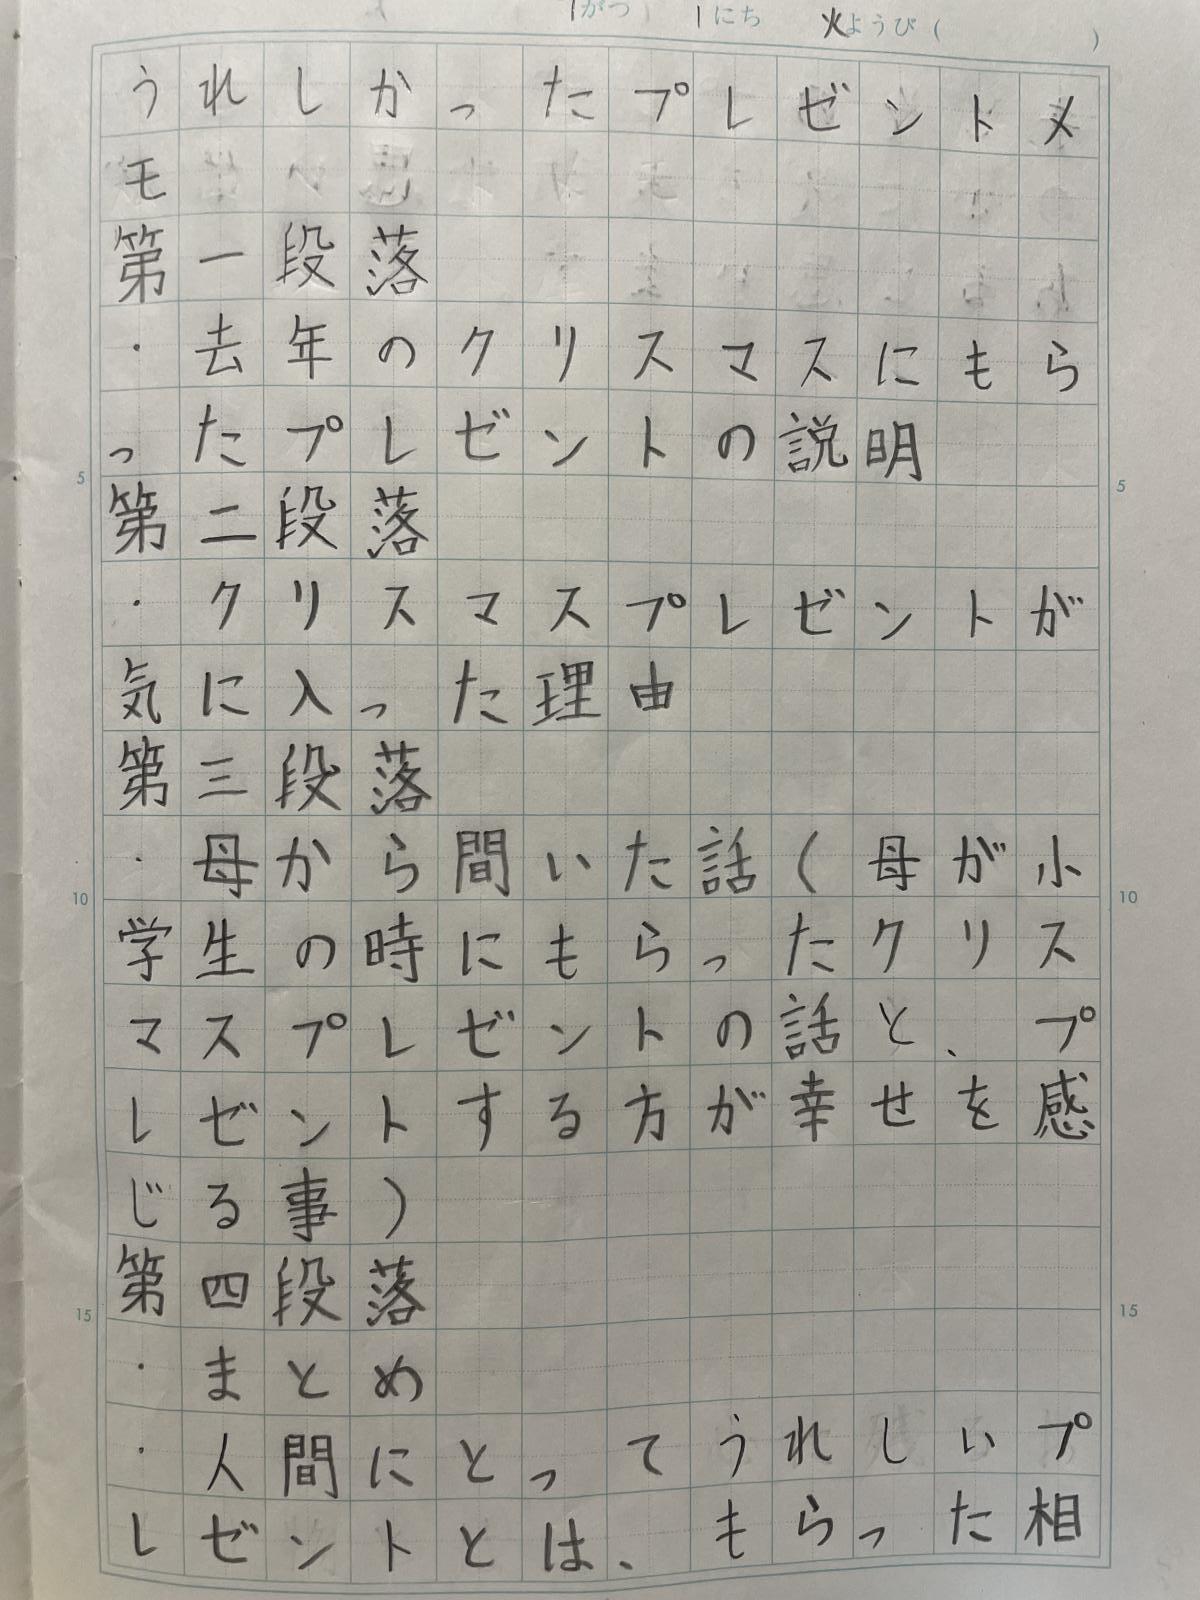 1がつ 1にち 火ようび( )
うれしかったプレゼントメ
モ
第一段落
・去年のクリスマスにもら
ったプレゼントの説明
5 5
第二段落
・クリスマスプレゼントが
気に入った理由
第三段落
・母から間いた話(母が小
10 10
学生の時にもらったクリス
マスプレゼントの話と、プ
レゼントする方が幸せを感
じる事)
第四段落
15 15
・まとめ
・人間にとってうれしいプ
レゼントとは、もらった相